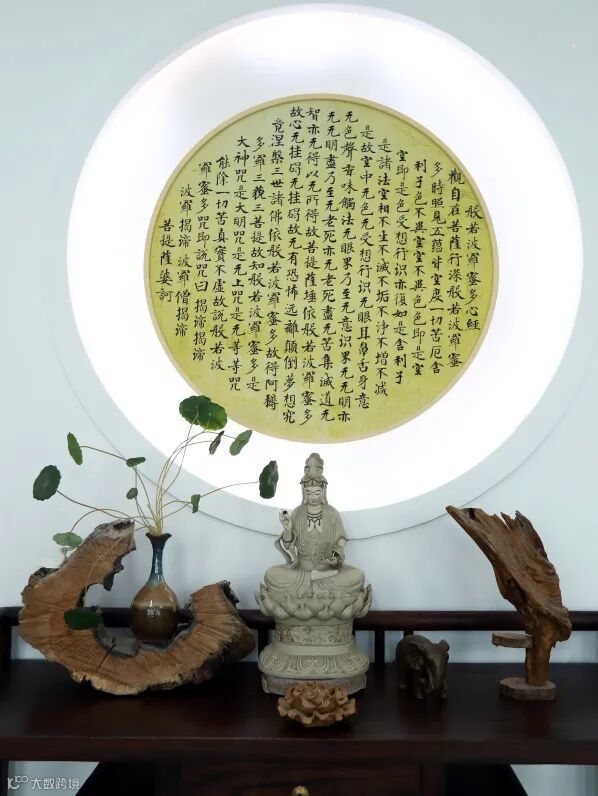 般若波羅蜜多心經
觀自在菩薩行深般若波羅蜜
多時照見五蘊皆空度一切苦厄舍
利子色不異空空不異色色即是空
空即是色受想行识亦復如是舍利子
是諸法空相不生不滅不垢不淨不增不减
是故空中无色无受想行识无眼耳鼻舌身意
无色聲香味觸法无眼界乃至无意识界无无明亦
无无明盡乃至无老死亦无老死盡无苦集滅道无
智亦无得以无所得故菩提薩埵依般若波羅蜜多
故心无挂碍无挂碍故无有恐怖远離顛倒夢想究
竟涅槃三世諸佛依般若波羅蜜多故得阿耨
多羅三藐三菩提故知般若波羅蜜多是
大神咒是大明咒是无上咒是无等等咒
能除一切苦真實不虚故說般若波
羅蜜多咒即說咒曰 揭諦揭諦
波羅揭諦 波羅僧揭諦
菩提薩婆訶
大数跨境